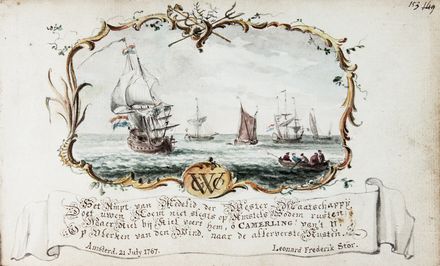 GWC
Het Ampt van Medelid der Wester-Maatschappy
Doet uwen Roem niet slegts op Amstels Bodem rusten;
Maer, Kiel bij Kiel voert hem, ó CAMERLING van't IJ,
Op Vlerken van den Wind, naar de alterverste Kusten.
Amsterd. 21 July 1767. Leonard Frederik Stor.